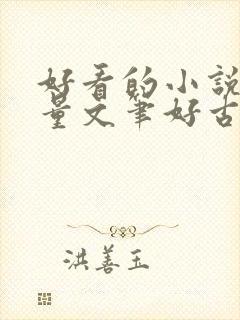 好看的小說
量文筆好古
洪善玉